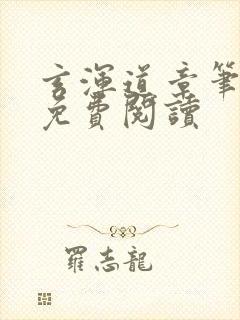 玄渾道章筆
免費閱讀
羅志龍